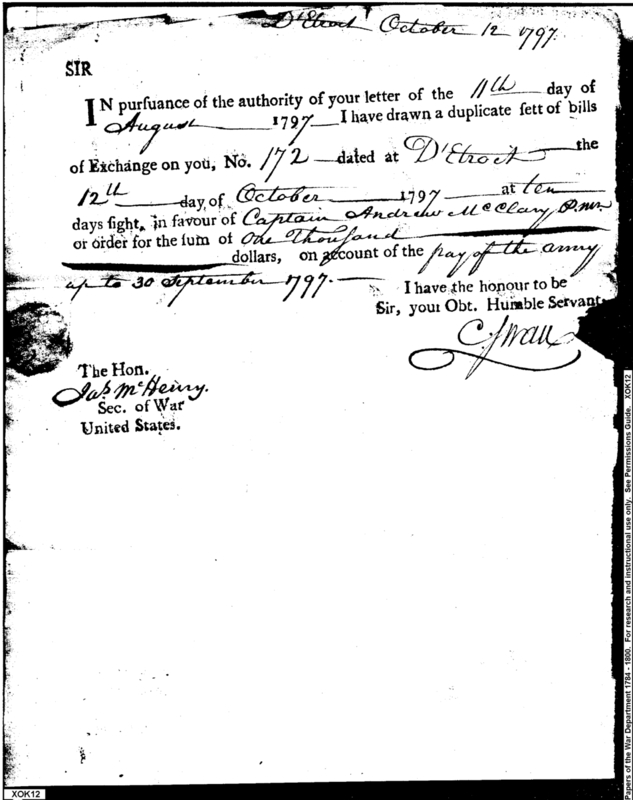 D'Etroit October 12 1797.
SIR
IN pursuance of the authority of your letter of the 11th day of
August 1797 I have drawn a duplicate sett of bills
of Exchange on you, No. 172 dated at D'Etroit the
12th day of October 1797 at ten
days sight, in favour of Captain Andrew McClary P.mr.
or order for the sum of One Thousand
dollars, on account of the pay of the army
up to 30 September 1797.
I have the honour to be
Sir, your Obt. Humble Servant
C Swan
The Hon.
Jas. McHenry.
Sec. of War
United States.
Papers of the War Department 1784 - 1800. For research and instructional use only. See Permissions Guide. XOK12
XOK12